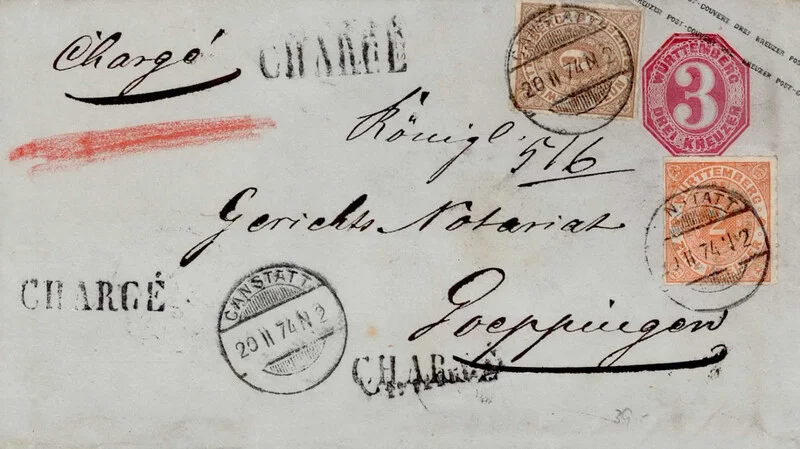 POST-COUVERT DREI KREUZER POST-COUVERT DREI KREUZER
Chargé
CHARGÉ
CANSTATT
20 II 74 N 2
WÜRTTEMBERG
3
DREI KREUZER
Königl.
516
WÜRTTEMBERG
NSTATT
II 74 2
Gerichts Notariat
CHARGÉ
CANSTATT
20 II 74 N 2
Goeppingen
CHARGÉ
39.-